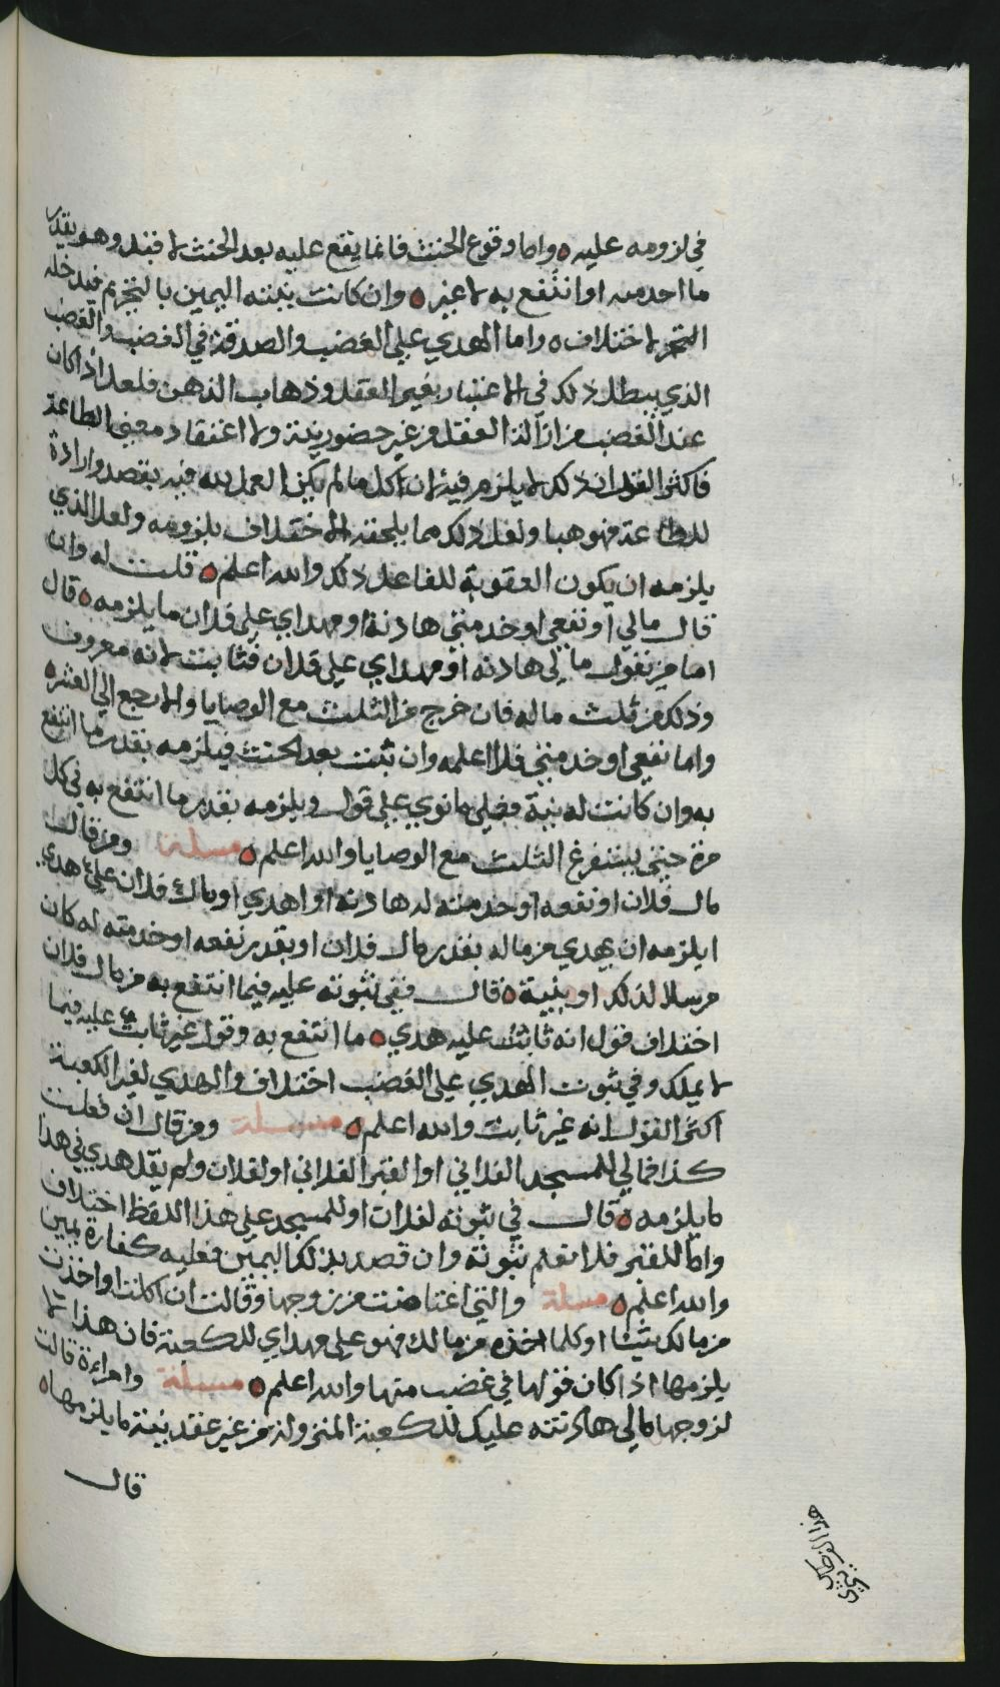 في لزومه عليه ه واما وقوع الحنث فانما يقع عليه بعد الحنث لا قبله وهو بقدر
ما اخدمه او انتفع به لا غير ه وان كانت نيته اليمين بالتحريم فيدخله
التحر لاختلاف ه واما الهدي على الغضب والصدقة في الغضب والغضب
الذي يبطل ذلك في الاعتبار بغير العقل وذهاب الذهن فلعل اذا كان
عند الغضب من ازالة العقل من غير حضور نية ولا اعتقاد معنى الطاعة
فاكثر القول ان ذلك لا يلزم فيه لان كل ما لم يكن العمل لله فيه بقصد وارادة
للطاعة فهو هبا ولعل ذلك مما يلحقه الاختلاف بلزومه ولعل الذي
يلزمه ان يكون العقوبة للفاعل ذلك والله اعلم ه قلت له وان
قال مالي او نفعي او خدمتي هادنة او مهداي على فلان ما يلزمه ه قال
اما من يقول مالي هادنه او مهداي على فلان فثابت لانه معروف
وذلك من ثلث ماله فان خرج من الثلث مع الوصايا والا رجع الى العشره
واما نفعي او خدمتي فلا اعلمه وان ثبت بعد الحنث فيلزمه بقدر ما انتفع
به وان كانت له نية فعلى ما نوى على قول ويلزمه بقدر ما انتفع به في كل
مرة حتى يستفرغ الثلث مع الوصايا والله اعلم ه مسلة ومن قال
مال فلان او نفعه او خدمته له هادنه او اهدي او مال فلان علي هدي
ايلزمه ان يهدي من ماله بقدر مال فلان او بقدر نفعه او خدمته له كان
مرسلا لذلك او بنية ه قال ففي ثبوته عليه فيما انتفع به من مال فلان
اختلاف قول انه ثابت عليه هدي ه ما انتفع به وقول غير ثابت عليه فيما
لا يملك وفي ثبوت الهدي على الغضب اختلاف والهدي لغير الكعبة
اكثر القول انه غير ثابت والله اعلم ه مسلة ومن قال ان فعلت
كذا فمالي للمسجد الفلاني او القبر الفلاني او لفلان ولم يقل هدي في هذا
ما يلزمه ه قال في ثبوته لفلان او للمسجد على هذا اللفظ اختلاف
واما للقبر فلا نعلم ثبوته وان قصد بذلك اليمين فعليه كفارة يمين
والله اعلم ه مسلة والتي اغتاضت من زوجها وقالت ان اكلت او اخذت
من مالك شيئا او كلما اخذه من مالك فهو علي مهداي للكعبة فان هذا لا
يلزمها اذا كان قولها في غضب منها والله اعلم ه مسلة وامراءة قالت
لزوجها مالي هادنته عليك للكعبة المنزولة من غير عقد نية ما يلزمها ه
قال